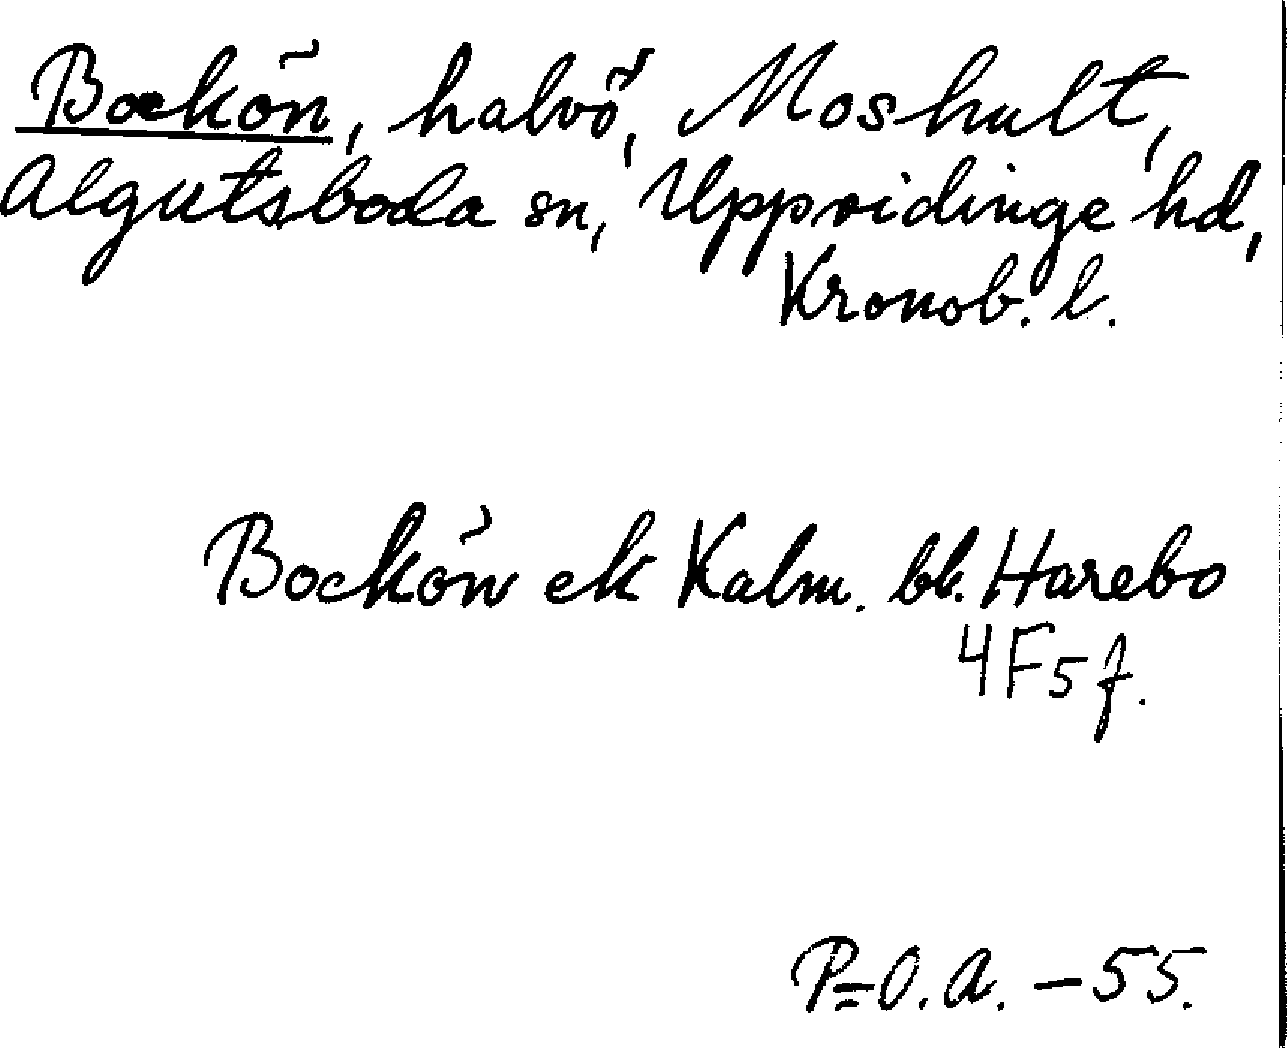 Bockön, halvö, Moshult,
Algutsboda sn, Uppvidinge hd,
Kronob. l.
Bockön ek Kalm. bl. Harebo
4F5f.
P=O.A. - 55.